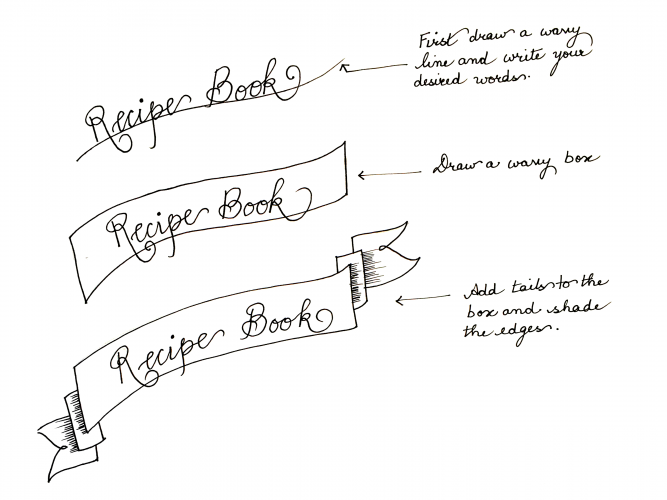 Recipe Book
First draw a wavy
line and write your
desired words.
Recipe Book
Draw a wavy box
Recipe Book
Add tails to the
box and shade
the edges.